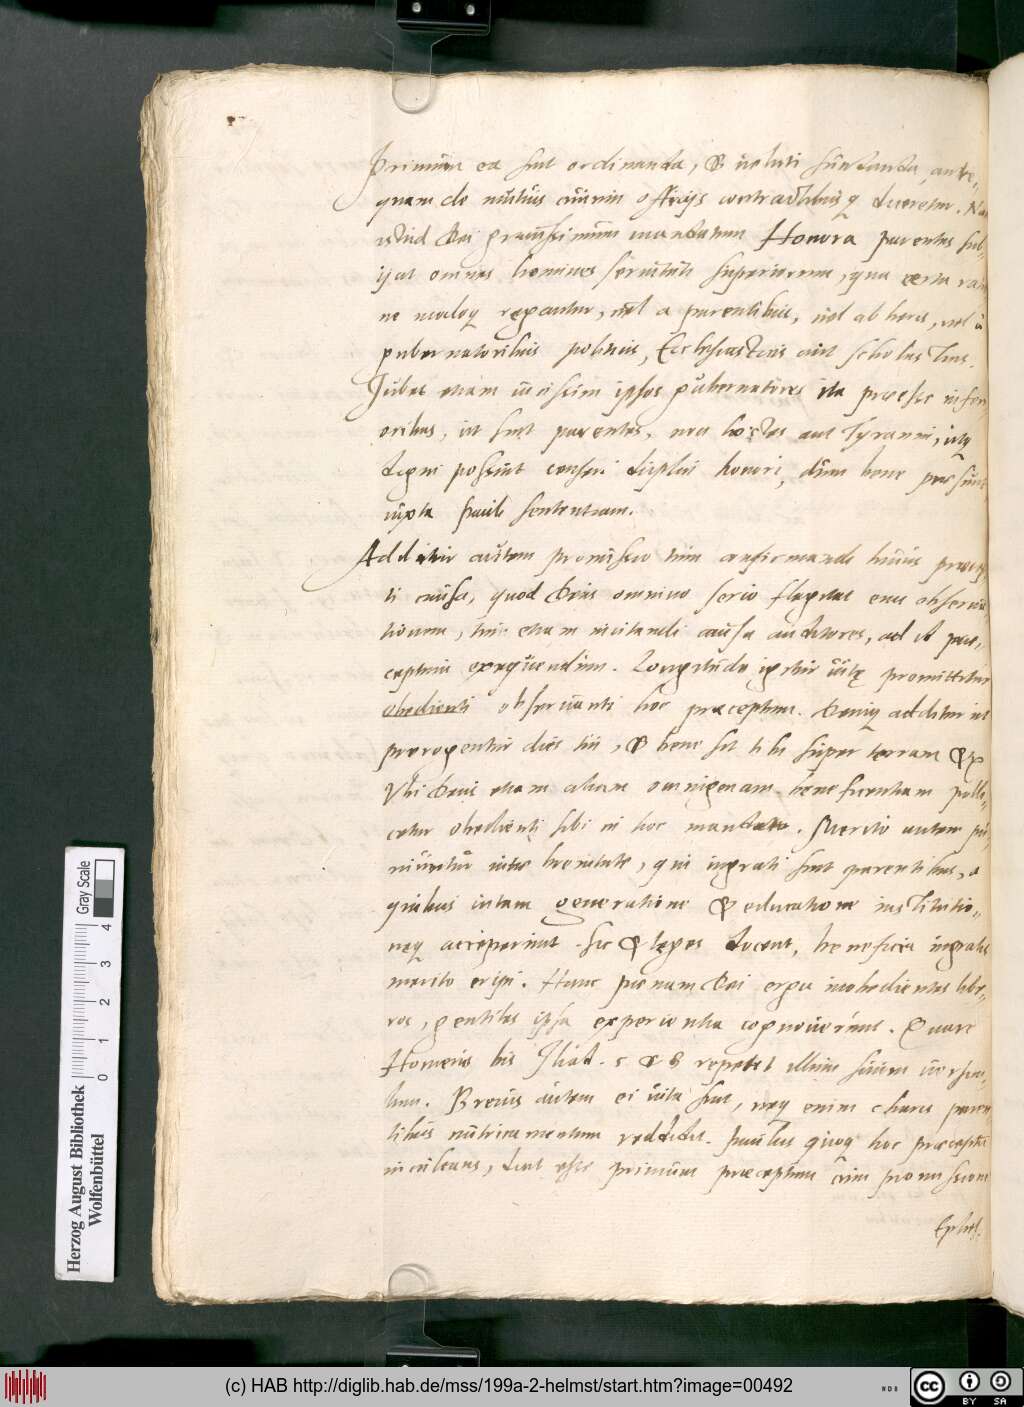 Primùm ea sunt ordinanda, & ueluti sūstanda, ante-
quam de mutuis ciuium officijs contractibusq̨ diceretur. Nam
istud Dei grauissimum mandatum Honora parentes sub-
ijcit omnes homines seruituti superiorum, qua certa rati-
ne modoq̨ regantur, uel a parentibus, uel ab heris, uel à
gubernatoribus politicis, Ecclesiasticis aut scholasticis.
Jubet etiam uicissim ipsos gubernatores ita praeesse inferi-
oribus, ut sint parentes, non hostes aut Tyranni, utq̨
digni possint censeri duplici honori, dum bene praesunt
iuxta Pauli sententiam.
Additur autem promissio tùm confirmandi huius praecep-
ti causa, quod Deus omnino serio flagitet eius obserua-
tionem, tùm etiam inuitandi causa auditores, ad id prae-
ceptum exequendum. Longitudo igitur uitę promittitur
obedienti obseruanti hoc praeceptum. Deniq̨ additur ut
prorogentur dies tui, & bene sit tibi super terram &c
Vbi Deus etiam aliam omnigenam beneficentiam polli-
cetur obedienti sibi in hoc mandato. Merito autem pu-
niuntur uitae breuitate, qui ingrati sunt parentibus, a
quibus uitam generatione & educatione institutio-
neq̨ acceperunt. Sic & leges docent, beneficia ingratis
merito eripi. Hanc poenam Dei erga inobedientes libe-
ros, gentiles ipsa experientia cognouerunt. Quare
Homerus bis Iliad. 5 & 8 repetit illum suum uersicu-
lum. Breuis autem ei uita fuit, neq̨ enim charis paren-
tibus nutricamentum reddidit. Paulus quoq̨ hoc praeceptū
inculcans, dicit esse primum praeceptum cum promissione
Ephes.
Herzog August Bibliothek
Wolfenbüttel
0 1 2 3 4
Gray Scale
(c) HAB http://diglib.hab.de/mss/199a-2-helmst/start.htm?image=00492
cc BY SA